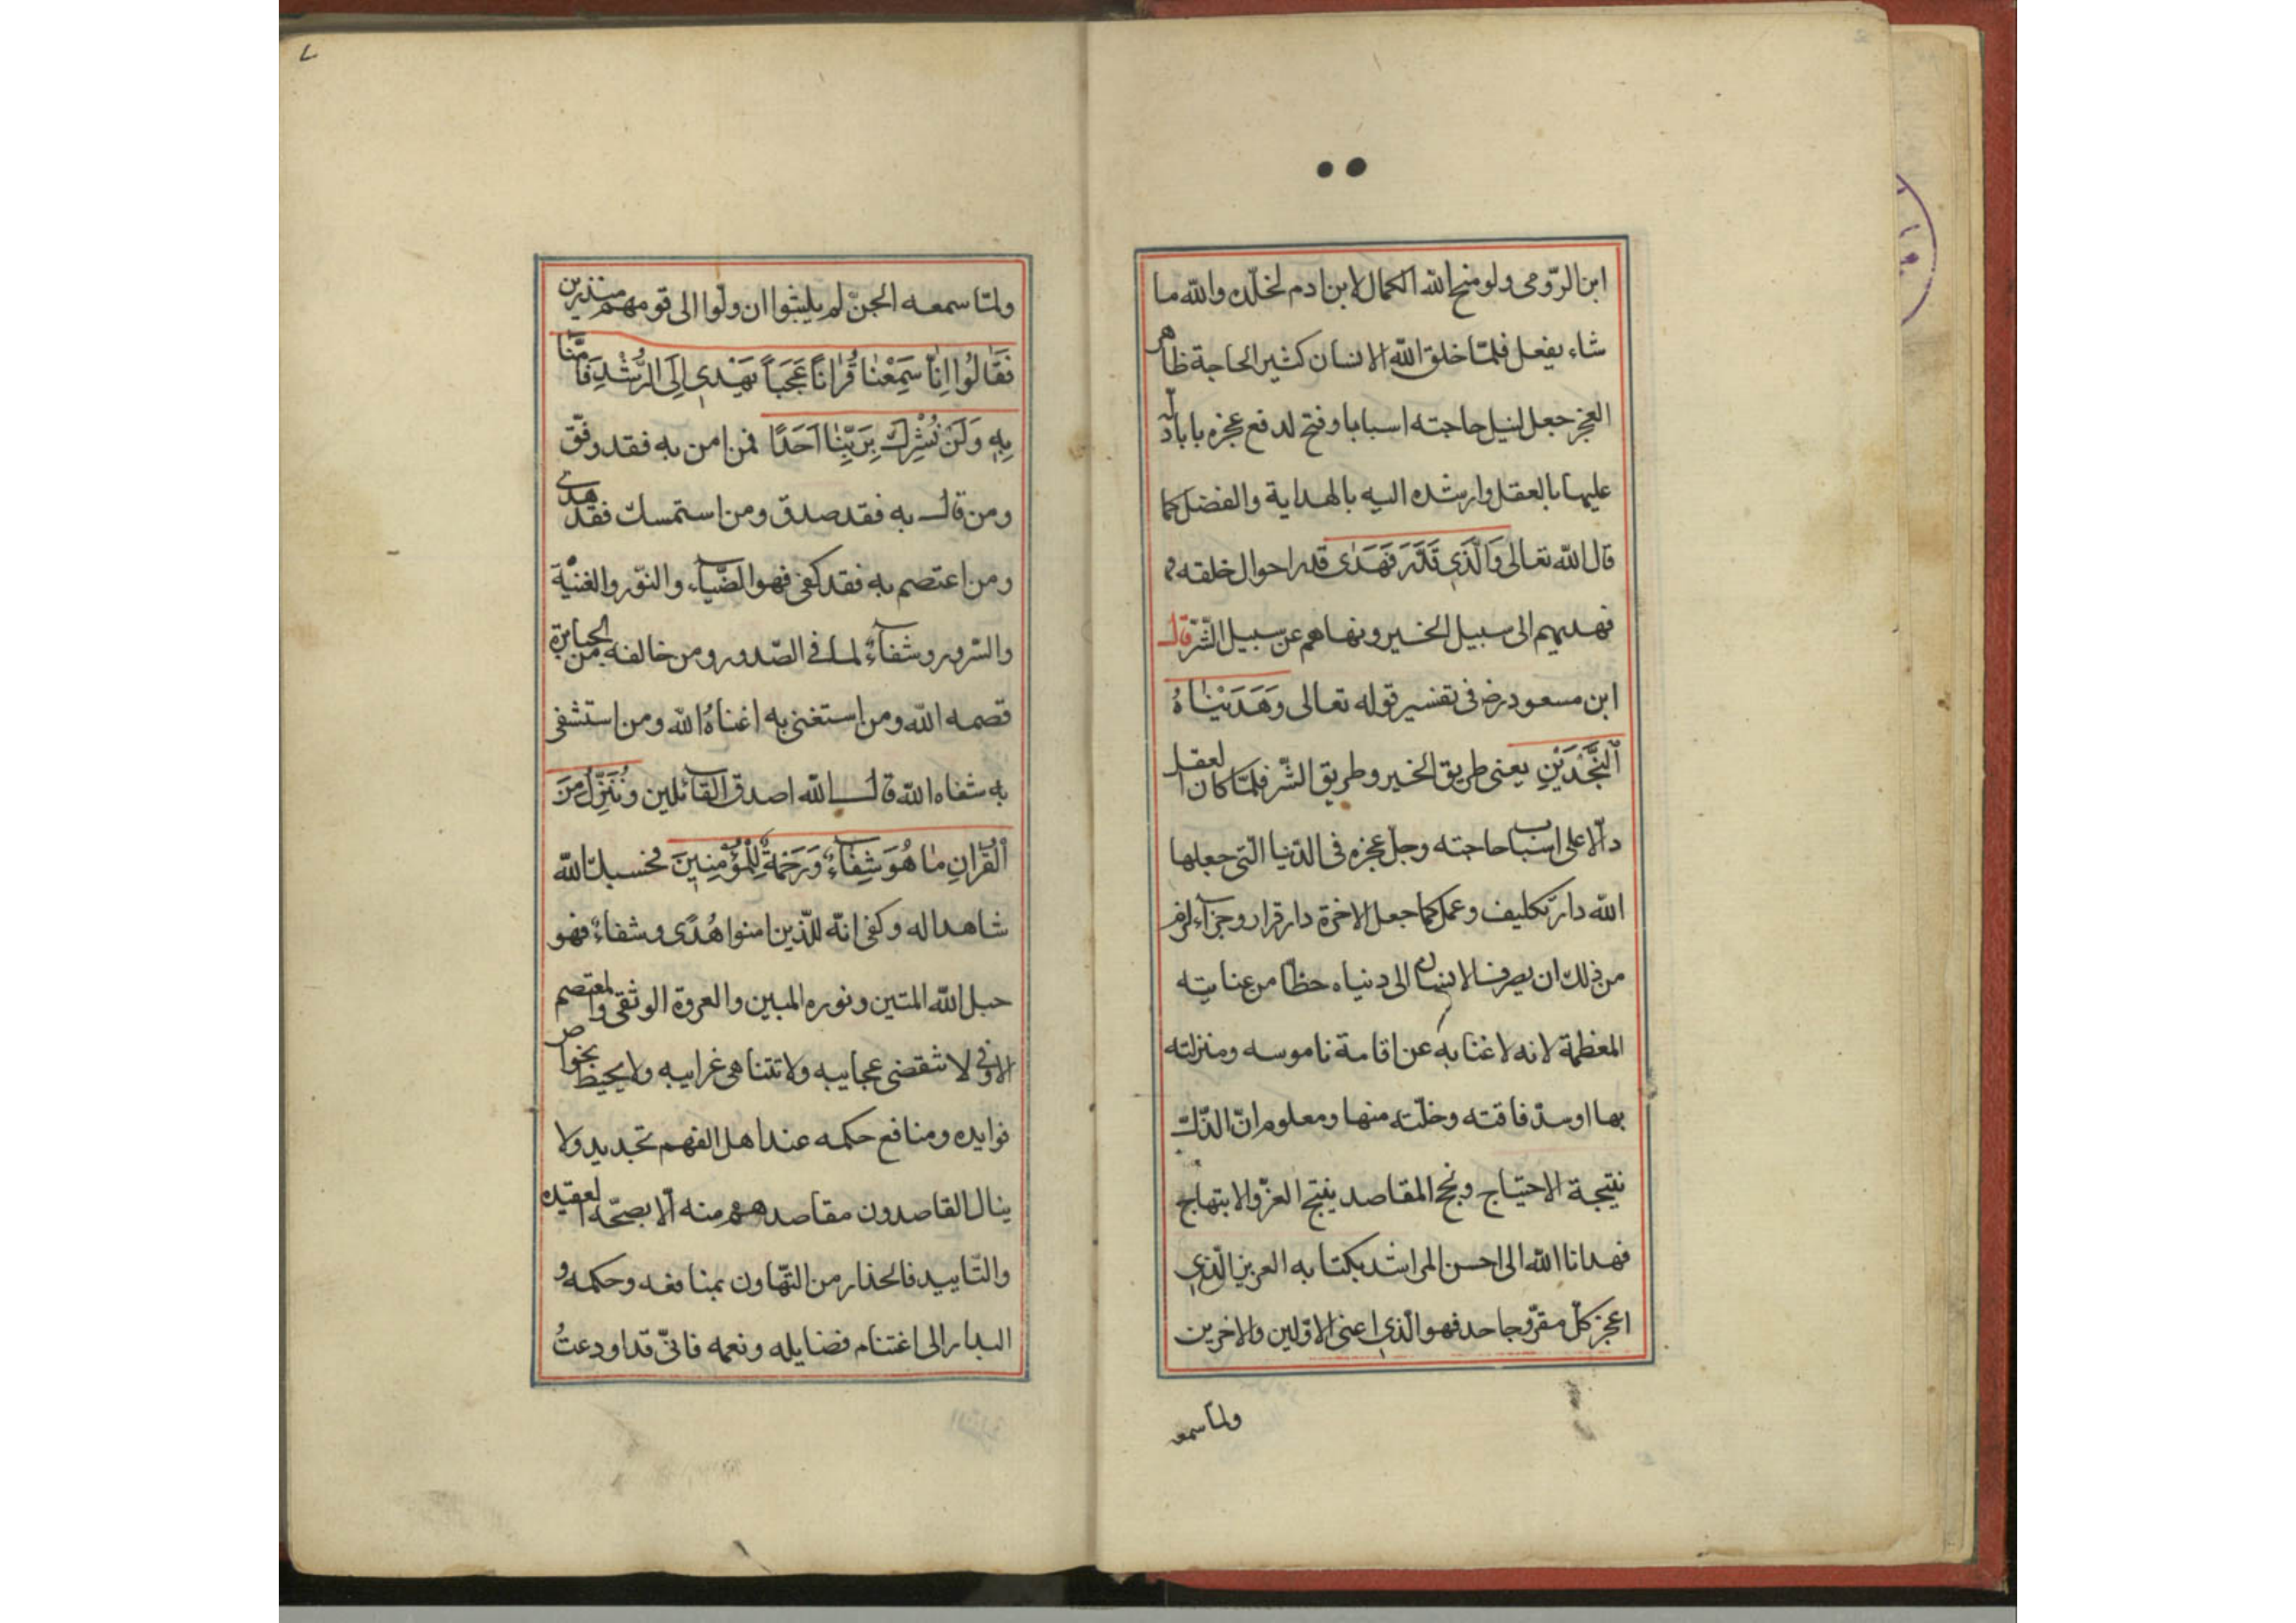 ابن الرّومى ولو منح الله الكمال لابن ادم لخلّده والله ما
شاء يفعل فلمّا خلق الله الانسان كثير الحاجة ظاهر
العجز جعل لنيل حاجته اسبابا وفتح لدفع عجزه بابا دلّه
عليها بالعقل وارشده اليه بالهداية والفضل كما
قال الله تعالى وَالَّذَي قَدَّرَ فَهَدَى قدر احوال خلقه
فهديهم الى سبيل الخير ونهاهم عن سبيل الشّرّ قال
ابن مسعود رض فى تفسير قوله تعالى وَهَدَيْنَاهُ
اَلنَّجْدَيْنِ يعنى طريق الخير وطريق الشّر فلمّا كان العقل
دالّا على اسباب حاجته وجل عجزه فى الدّنيا الّتى جعلها
الله دار تكليف وعمل كما جعل الاخرة دار قرار وجزآء لزم
من ذلك ان يصرف الانسان الى دنياه حظّا من عنايته
المعظمة لانه لا غنا به عن اقامة ناموسه ومنزلته
بها او سدّ فاقته وخلّته منها ومعلوم انّ الذّلّ
نتيجة الاحتياج ونجح المقاصد ينتج العزّ والابتهاج
فهدانا الله الى احسن المراشد بكتابه العزيز الّذي
اعجز كلّ مقرّ وجاحد فهو الّذي اعنى الاوّلين والاخرين
ولما سمعه
ولمّا سمعه الجنّ لم يلبثوا ان ولّوا الى قومهم منذرين
فَقَالُوا اِنَّا سَمِعْنَا قُرْاناً عَجَباً يَهْدِي اِلَى الرُّشْدِ فَاٰمَنَّا
بِهِ وَلَنْ نُشْرِكَ بِرَبِّنَا اَحَدًا فمن امن به فقد وفّق
ومن قال به فقد صدق ومن استمسك فقد هدى
ومن اعتصم به فقد كفى فهو الضّياء والنّور والغنيّة
والسّرور وشفاءٌ لما فى الصّدور ومن خالفه من الجبابرة
قصمه الله ومن استغنى به اغناهُ الله ومن استشفى
به شفاه الله قال الله اصدق القائلين وَنُنَزِّلُ مِنَ
الْقُرْانِ مَا هُوَ شِفَاءٌ وَرَحْمَةٌ لِلْمُؤْمِنِينَ فحسبك الله
شاهدا له وكفى انّه للّذين امنوا هُدًى وشفاءٌ فهو
حبل الله المتين ونوره المبين والعروة الوثقى والمعتصم
الاوفى لا تنقضى عجايبه ولا تتناهى غرايبه ولا يحيط بخواص
فوايده ومنافع حكمه عند اهل الفهم تحديد ولا
ينال القاصدون مقاصدهم منه الّا بصحّة العقيده
والتّاييد فالحذار من التّهاون بمنافعه وحكمه و
البدار الى اغتنام فضايله ونعمه فانّى قد اودعتُ